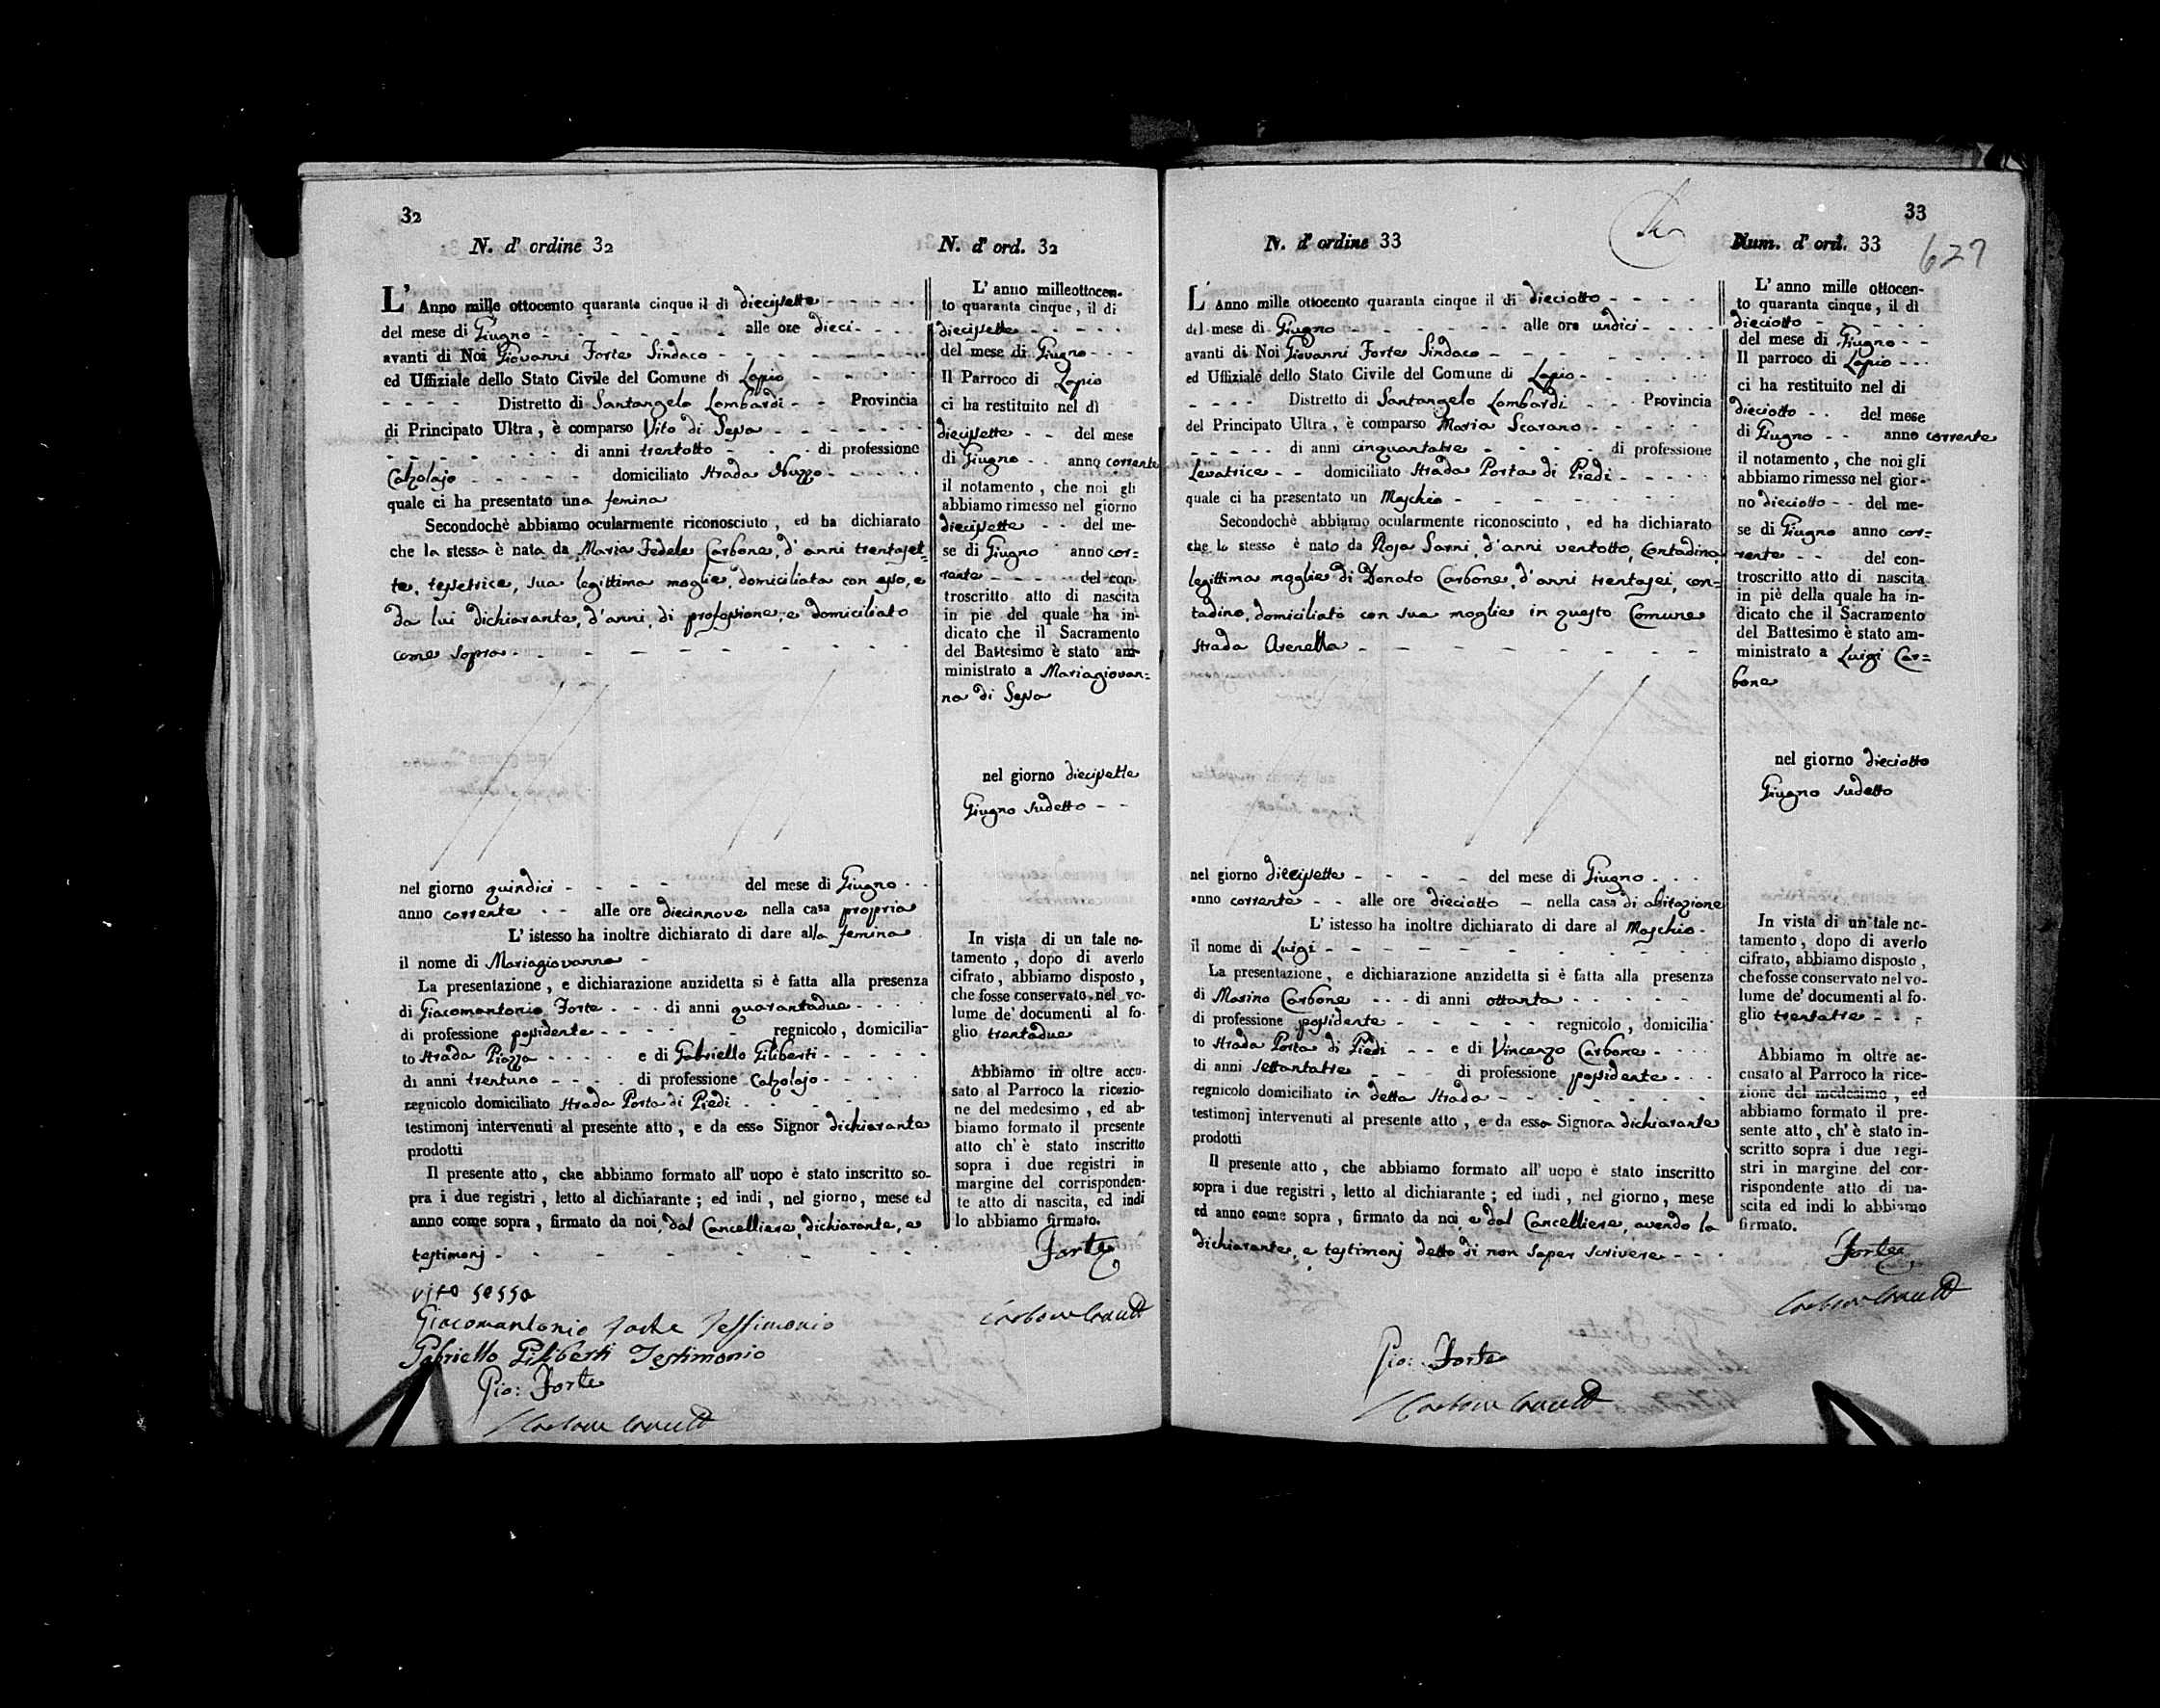 32
N. d' ordine 32
L' Anno mille ottocento quaranta cinque il dì diecisette
del mese di Giugno alle ore dieci
avanti di Noi Giovanni Forte Sindaco
ed Uffiziale dello Stato Civile del Comune di Lapio
Distretto di Santangelo Lombardi Provincia
di Principato Ultra, è comparso Vito di Sessa
di anni trentotto di professione
Calzolajo domiciliato Strada Nuzzo
quale ci ha presentato una femina
Secondochè abbiamo ocularmente riconosciuto, ed ha dichiarato
che la stessa è nata da Maria Fedele Carbone, d'anni trentaset-
te, tessetrice, sua legittima moglie, domiciliata con esso, e
da lui dichiarante, d'anni, di professione, e domiciliato
come sopra
nel giorno quindici del mese di Giugno
anno corrente alle ore diecinnove nella casa propria
L' istesso ha inoltre dichiarato di dare alla femina
il nome di Mariagiovanna
La presentazione, e dichiarazione anzidetta si è fatta alla presenza
di Giacomantonio Forte di anni quarantadue
di professione possidente regnicolo, domicilia-
to Strada Piazza e di Gabriello Filiberti
di anni trentuno di professione Calzolajo
regnicolo domiciliato Strada Porta di Piedi
testimonj intervenuti al presente atto, e da esso Signor dichiarante
prodotti
Il presente atto, che abbiamo formato all' uopo è stato inscritto so-
pra i due registri, letto al dichiarante; ed indi, nel giorno, mese ed
anno come sopra, firmato da noi, dal Cancelliere, dichiarante, e
testimonj
vito sessa
Giacomantonio Forte Testimonio
Gabriello Filiberti Testimonio
Gio: Forte
N. d' ord. 32
L' anno milleottocen-
to quaranta cinque, il dì
diecisette
del mese di Giugno
Il Parroco di Lapio
ci ha restituito nel dì
diecisette del mese
di Giugno anno corrente
il notamento, che noi gli
abbiamo rimesso nel giorno
diecisette del me-
se di Giugno anno cor=
rente del con-
troscritto atto di nascita
in pie del quale ha in-
dicato che il Sacramento
del Battesimo è stato am-
ministrato a Mariagiovan=
na di Sessa
nel giorno diecisette
Giugno sudetto
In vista di un tale no-
tamento, dopo di averlo
cifrato, abbiamo disposto,
che fosse conservato nel vo-
lume de' documenti al fo-
glio trentadue
Abbiamo in oltre accu-
sato al Parroco la ricezio-
ne del medesimo, ed ab-
biamo formato il presente
atto ch' è stato inscritto
sopra i due registri in
margine del corrisponden-
te atto di nascita, ed indi
lo abbiamo firmato.
Forte
33
N. d' ordine 33
L' Anno mille ottocento quaranta cinque il dì dieciotto
del mese di Giugno alle ore undici
avanti di Noi Giovanni Forte Sindaco
ed Uffiziale dello Stato Civile del Comune di Lapio
Distretto di Santangelo Lombardi Provincia
del Principato Ultra, è comparso Maria Scarano
di anni cinquantatre di professione
Levatrice domiciliato Strada Porta di Piedi
quale ci ha presentato un Maschio
Secondochè abbiamo ocularmente riconosciuto, ed ha dichiarato
che lo stesso è nato da Rosa Sarni, d'anni ventotto, Contadina,
legittima moglie di Donato Carbone, d'anni trentasei, con=
tadino, domiciliato con sua moglie in questo Comune
Strada Arenella
nel giorno diecisette del mese di Giugno
anno corrente alle ore dieciotto nella casa di abitazione
L' istesso ha inoltre dichiarato di dare al Maschio
il nome di Luigi
La presentazione, e dichiarazione anzidetta si è fatta alla presenza
di Marino Carbone di anni ottanta
di professione possidente regnicolo, domicilia-
to Strada Porta di Piedi e di Vincenzo Carbone
di anni settantatre di professione possidente
regnicolo domiciliato in detta Strada
testimonj intervenuti al presente atto, e da essa Signora dichiarante
prodotti
Il presente atto, che abbiamo formato all' uopo è stato inscritto
sopra i due registri, letto al dichiarante; ed indi, nel giorno, mese
ed anno come sopra, firmato da noi, e dal Cancelliere, avendo la
dichiarante, e testimonj detto di non saper scrivere
Gio: Forte
Num. d' ord. 33
627
L' anno mille ottocen-
to quaranta cinque, il dì
dieciotto
del mese di Giugno
Il parroco di Lapio
ci ha restituito nel di
dieciotto del mese
di Giugno anno corrente
il notamento, che noi gli
abbiamo rimesso nel gior-
no dieciotto del me-
se di Giugno anno cor=
rente del con-
troscritto atto di nascita
in piè della quale ha in-
dicato che il Sacramento
del Battesimo è stato am-
ministrato a Luigi Car=
bone
nel giorno dieciotto
Giugno sudetto
In vista di un tale no-
tamento, dopo di averlo
cifrato, abbiamo disposto,
che fosse conservato nel vo-
lume de' documenti al fo-
glio trentatre
Abbiamo in oltre ac-
cusato al Parroco la rice-
zione del medesimo, ed
abbiamo formato il pre-
sente atto, ch' è stato in-
scritto sopra i due regi-
stri in margine del cor-
rispondente atto di na-
scita ed indi lo abbiamo
firmato.
Forte